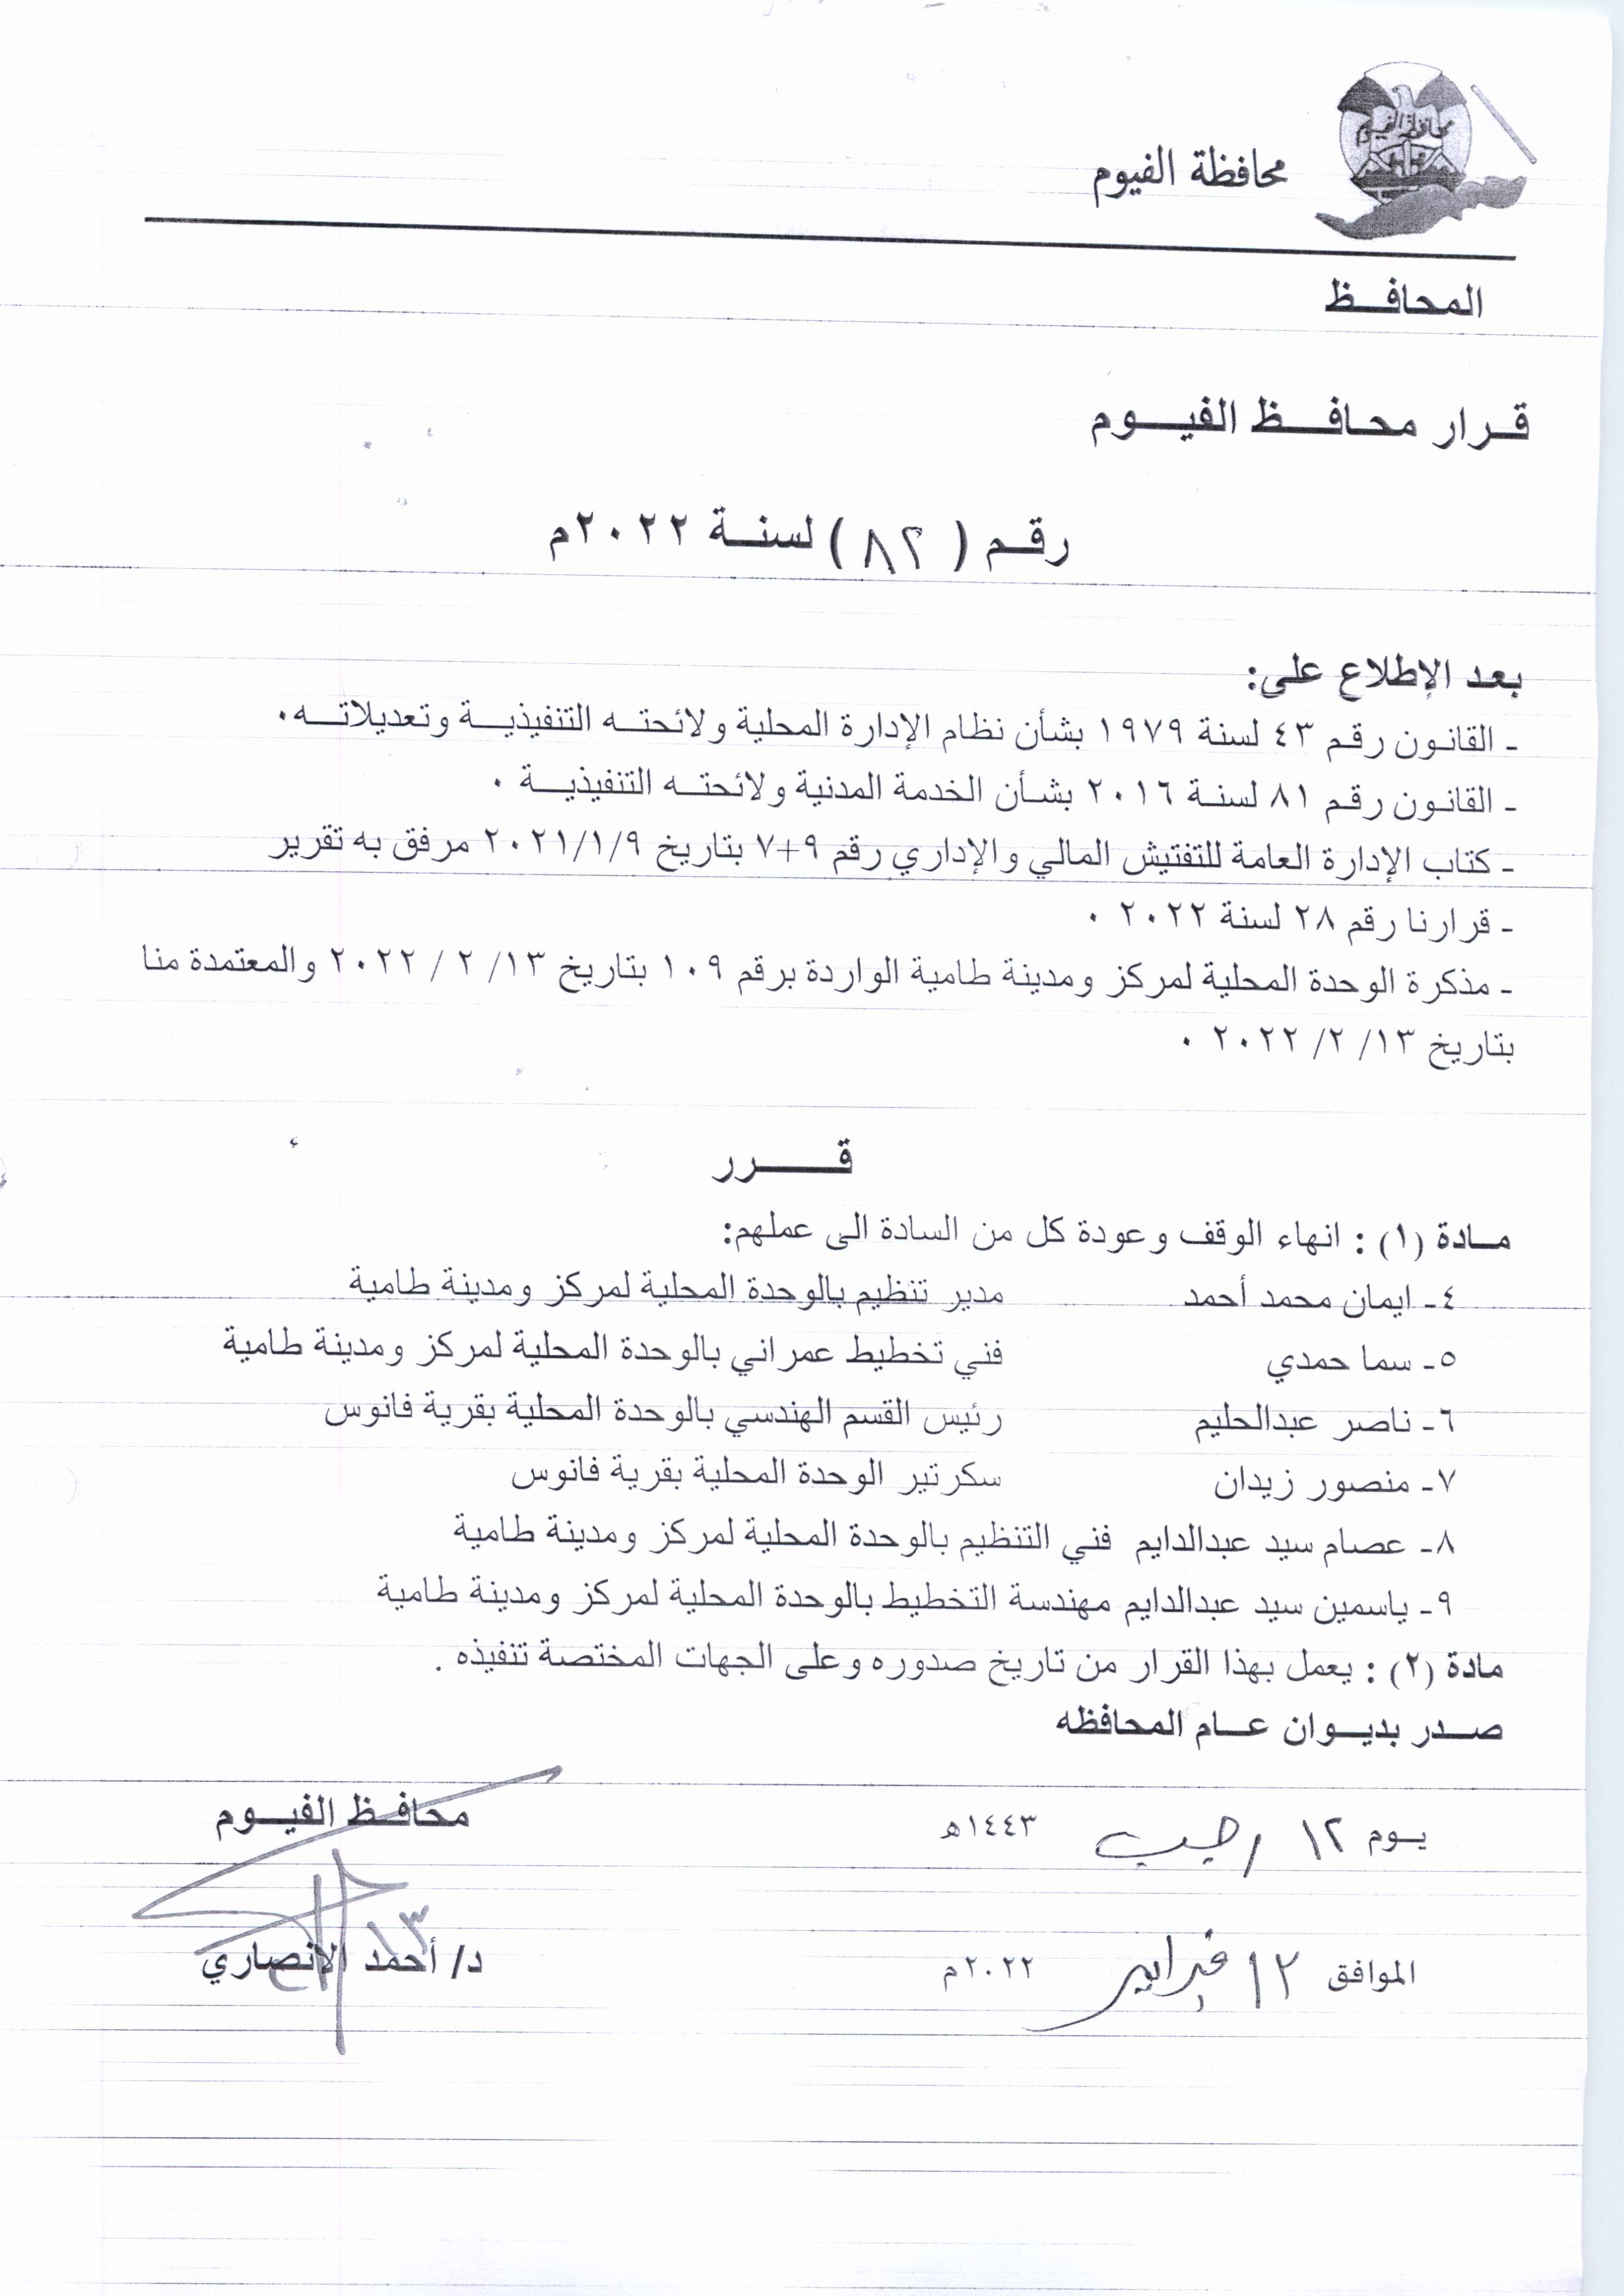 محافظة الفيوم
محافظة الفيوم
المحافـــظ
قـرار محـافـــظ الفيـــوم
رقـم ( ٨٢ ) لسنـة ٢٠٢٢م
بعد الإطلاع على:
ـ القانون رقم ٤٣ لسنة ١٩٧٩ بشأن نظام الإدارة المحلية ولائحتـه التنفيذيـة وتعديلاتـه.
ـ القانون رقم ٨١ لسنة ٢٠١٦ بشأن الخدمة المدنية ولائحتـه التنفيذيـة .
ـ كتاب الإدارة العامة للتفتيش المالي والإداري رقم ٩+٧ بتاريخ ٢٠٢١/١/٩ مرفق به تقرير
ـ قرارنا رقم ٢٨ لسنة ٢٠٢٢ .
ـ مذكرة الوحدة المحلية لمركز ومدينة طامية الواردة برقم ١٠٩ بتاريخ ١٣/ ٢ / ٢٠٢٢ والمعتمدة منا
بتاريخ ١٣/ ٢/ ٢٠٢٢ .
قـــــرر
مـادة (١) : انهاء الوقف وعودة كل من السادة الى عملهم:
٤ـ ايمان محمد أحمد مدير تنظيم بالوحدة المحلية لمركز ومدينة طامية
٥ـ سما حمدي فني تخطيط عمراني بالوحدة المحلية لمركز ومدينة طامية
٦ـ ناصر عبدالحليم رئيس القسم الهندسي بالوحدة المحلية بقرية فانوس
٧ـ منصور زيدان سكرتير الوحدة المحلية بقرية فانوس
٨ـ عصام سيد عبدالدايم فني التنظيم بالوحدة المحلية لمركز ومدينة طامية
٩ـ ياسمين سيد عبدالدايم مهندسة التخطيط بالوحدة المحلية لمركز ومدينة طامية
مادة (٢) : يعمل بهذا القرار من تاريخ صدوره وعلى الجهات المختصة تنفيذه .
صـدر بديـوان عـام المحافظه
يـوم ١٢ رجب ١٤٤٣هـ
محافـظ الفيـــوم
الموافق ١٢ فبراير ٢٠٢٢م
١٣
د/ أحمد الانصاري